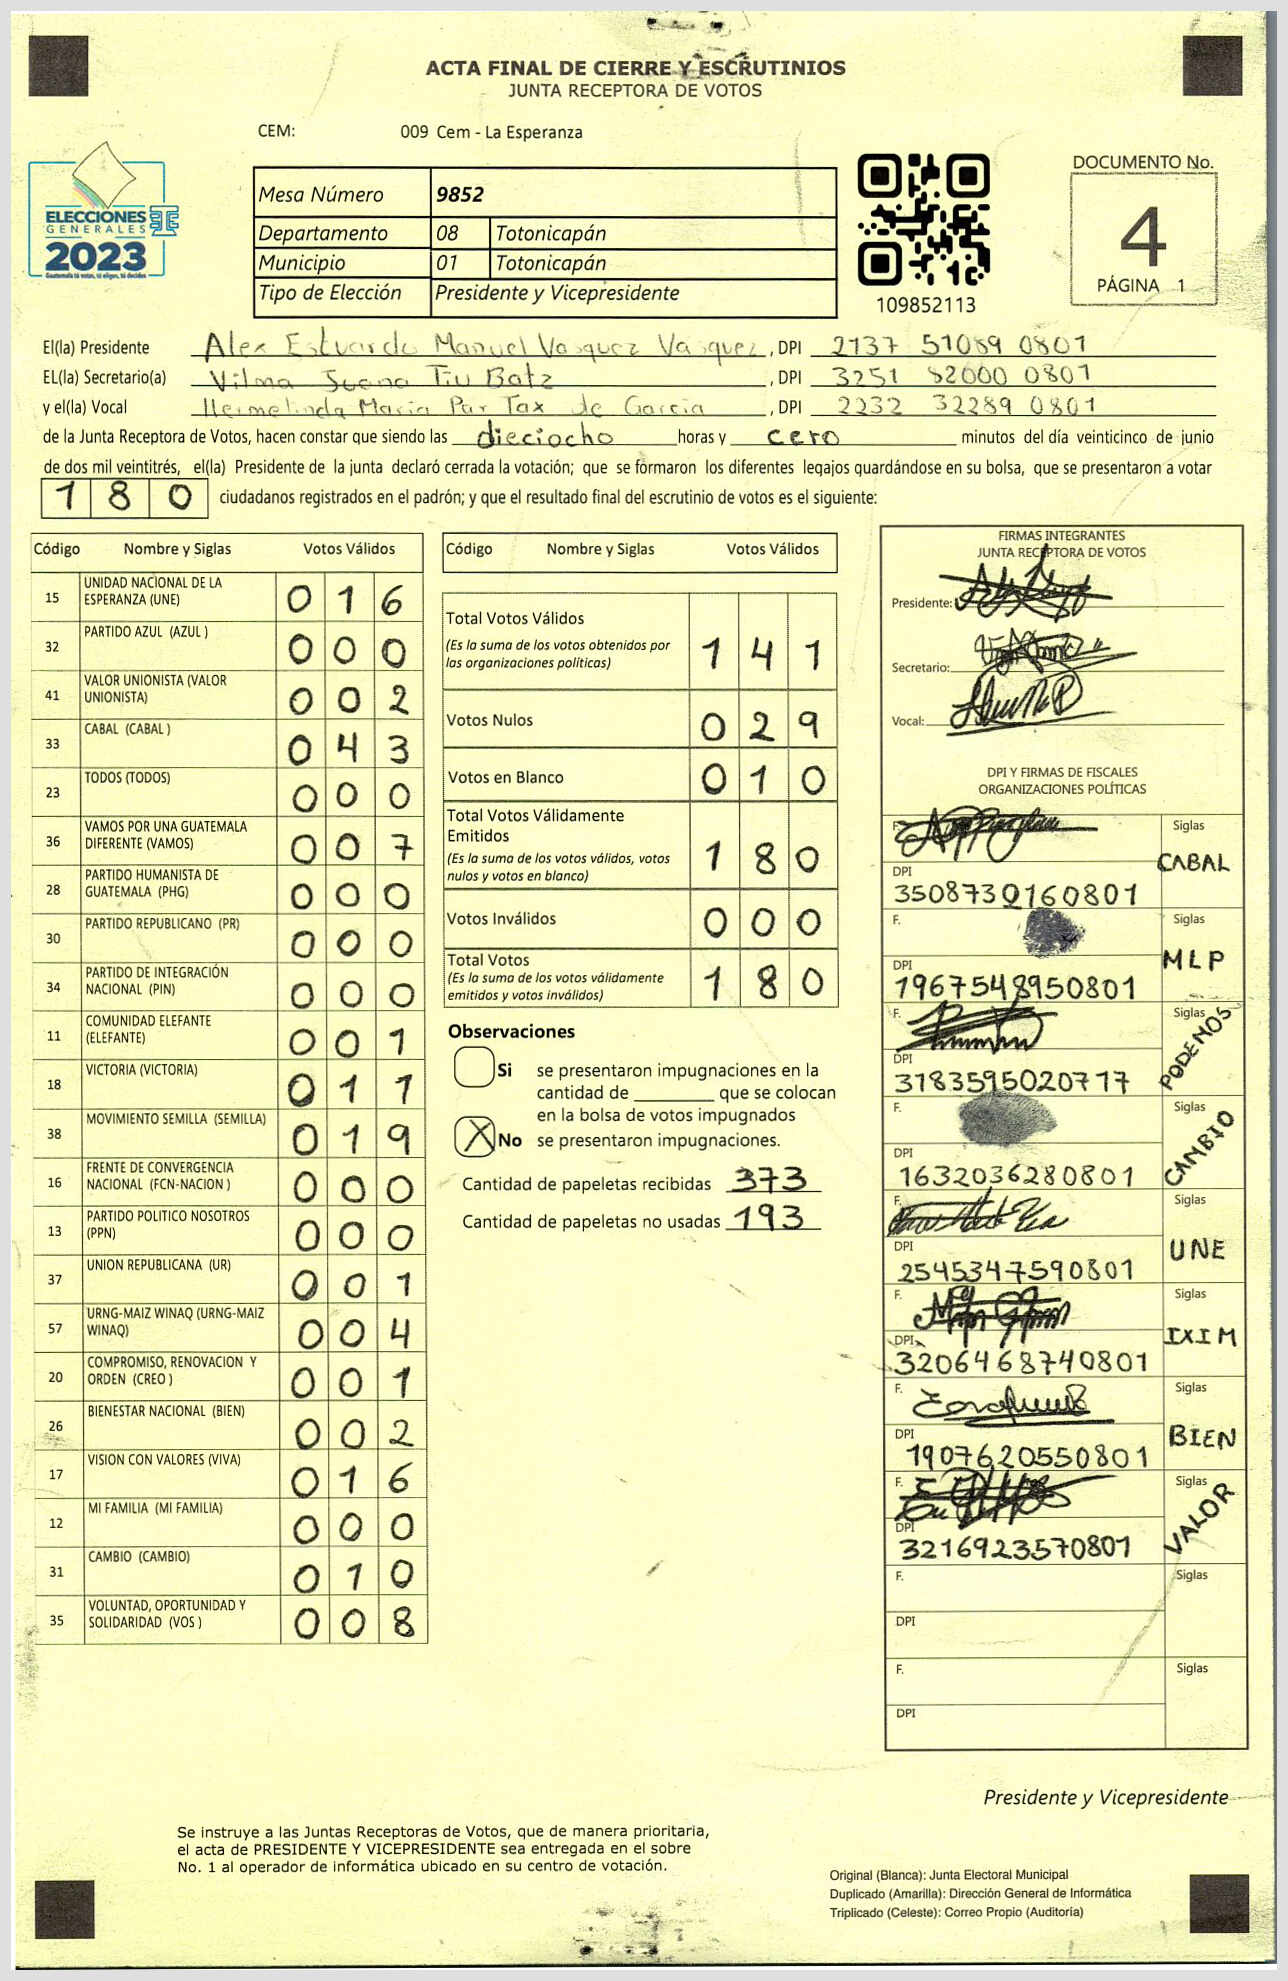 ACTA FINAL DE CIERRE Y ESCRUTINIOS
JUNTA RECEPTORA DE VOTOS
CEM: 009 Cem - La Esperanza
ELECCIONES
GENERALES
2023
Guatemala tú votas, tú eliges, tú decides
Mesa Número 9852
Departamento 08 Totonicapán
Municipio 01 Totonicapán
Tipo de Elección Presidente y Vicepresidente
109852113
DOCUMENTO No.
4
PÁGINA 1
El(la) Presidente Alex Estuardo Manuel Vasquez Vasquez, DPI 2137 51089 0801
EL(la) Secretario(a) Vilma Juana Tiu Batz, DPI 3251 82000 0801
y el(la) Vocal Hermelinda Maria Par Tax de Garcia, DPI 2232 32289 0801
de la Junta Receptora de Votos, hacen constar que siendo las dieciocho horas y cero minutos del día veinticinco de junio
de dos mil veintitrés, el(la) Presidente de la junta declaró cerrada la votación; que se formaron los diferentes legajos guardándose en su bolsa, que se presentaron a votar
180 ciudadanos registrados en el padrón; y que el resultado final del escrutinio de votos es el siguiente:
Código Nombre y Siglas Votos Válidos
15 UNIDAD NACIONAL DE LA ESPERANZA (UNE) 016
32 PARTIDO AZUL (AZUL ) 000
41 VALOR UNIONISTA (VALOR UNIONISTA) 002
33 CABAL (CABAL ) 043
23 TODOS (TODOS) 000
36 VAMOS POR UNA GUATEMALA DIFERENTE (VAMOS) 007
28 PARTIDO HUMANISTA DE GUATEMALA (PHG) 000
30 PARTIDO REPUBLICANO (PR) 000
34 PARTIDO DE INTEGRACIÓN NACIONAL (PIN) 000
11 COMUNIDAD ELEFANTE (ELEFANTE) 001
18 VICTORIA (VICTORIA) 011
38 MOVIMIENTO SEMILLA (SEMILLA) 019
16 FRENTE DE CONVERGENCIA NACIONAL (FCN-NACION ) 000
13 PARTIDO POLITICO NOSOTROS (PPN) 000
37 UNION REPUBLICANA (UR) 001
57 URNG-MAIZ WINAQ (URNG-MAIZ WINAQ) 004
20 COMPROMISO, RENOVACION Y ORDEN (CREO ) 001
26 BIENESTAR NACIONAL (BIEN) 002
17 VISION CON VALORES (VIVA) 016
12 MI FAMILIA (MI FAMILIA) 000
31 CAMBIO (CAMBIO) 010
35 VOLUNTAD, OPORTUNIDAD Y SOLIDARIDAD (VOS ) 008
Código Nombre y Siglas Votos Válidos
Total Votos Válidos
(Es la suma de los votos obtenidos por
las organizaciones políticas) 141
Votos Nulos 029
Votos en Blanco 010
Total Votos Válidamente
Emitidos
(Es la suma de los votos válidos, votos
nulos y votos en blanco) 180
Votos Inválidos 000
Total Votos
(Es la suma de los votos válidamente
emitidos y votos inválidos) 180
Observaciones
Si se presentaron impugnaciones en la
cantidad de ________ que se colocan
en la bolsa de votos impugnados
X No se presentaron impugnaciones.
Cantidad de papeletas recibidas 373
Cantidad de papeletas no usadas 193
FIRMAS INTEGRANTES
JUNTA RECEPTORA DE VOTOS
Presidente:
Secretario:
Vocal:
DPI Y FIRMAS DE FISCALES
ORGANIZACIONES POLÍTICAS
F. Siglas
CABAL
DPI
3508730160801
F. Siglas
MLP
DPI
1967548950801
F. Siglas
PODEMOS
DPI
3183595020717
F. Siglas
CAMBIO
DPI
1632036280801
F. Siglas
UNE
DPI
2545347590801
F. Siglas
IXIM
DPI
3206468740801
F. Siglas
BIEN
DPI
1907620550801
F. Siglas
VALOR
DPI
3216923570801
F. Siglas
DPI
F. Siglas
DPI
Presidente y Vicepresidente
Se instruye a las Juntas Receptoras de Votos, que de manera prioritaria,
el acta de PRESIDENTE Y VICEPRESIDENTE sea entregada en el sobre
No. 1 al operador de informática ubicado en su centro de votación.
Original (Blanca): Junta Electoral Municipal
Duplicado (Amarilla): Dirección General de Informática
Triplicado (Celeste): Correo Propio (Auditoría)